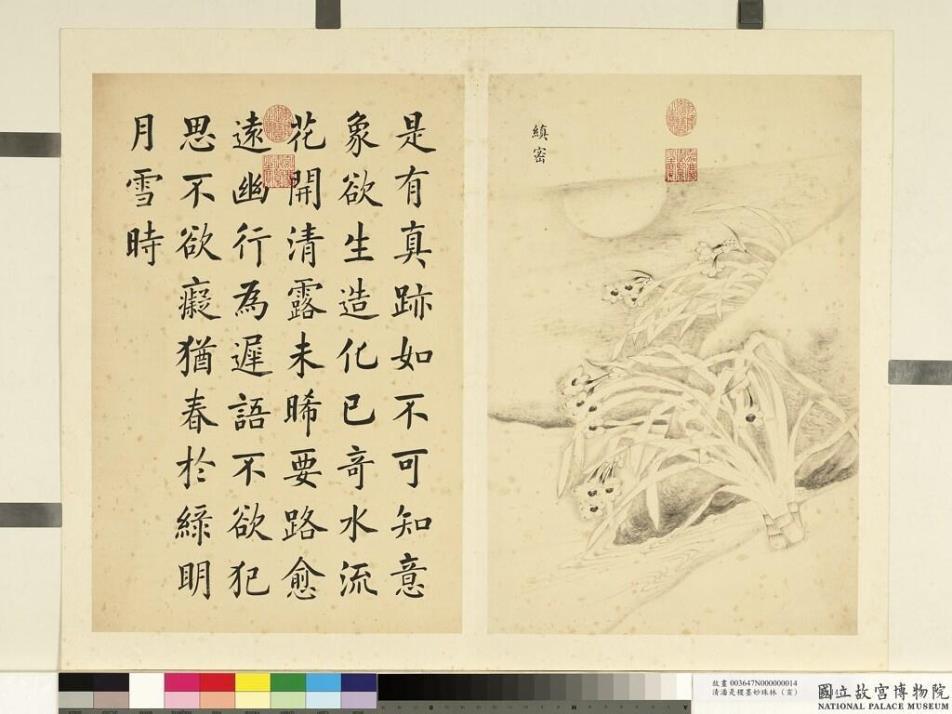 縝密
是有真跡如不可知意
象欲生造化已奇水流
花開清露未晞要路愈
遠幽行為遲語不欲犯
思不欲癡猶春於綠明
月雪時
故畫 003647N000000014
清潘是稷墨妙珠林
國立故宮博物院
NATIONAL PALACE MUSEUM